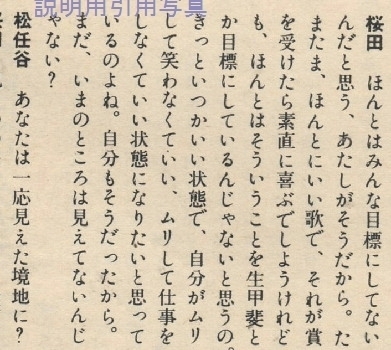 説明用引用写真
桜田　ほんとはみんな目標にしてない
んだと思う、あたしがそうだから。た
またま、ほんとにいい歌で、それが賞
を受けたら素直に喜ぶでしょうけれど
も、ほんとはそういうことを生甲斐と
か目標にしているんじゃないと思うの。
きっといつかいい状態で、自分がムリ
して笑わなくていい、ムリして仕事を
しなくていい状態になりたいと思って
いるのよね。自分もそうだったから。
まだ、いまのところは見えてないんじ
ゃない？
松任谷　あなたは一応見えた境地に？